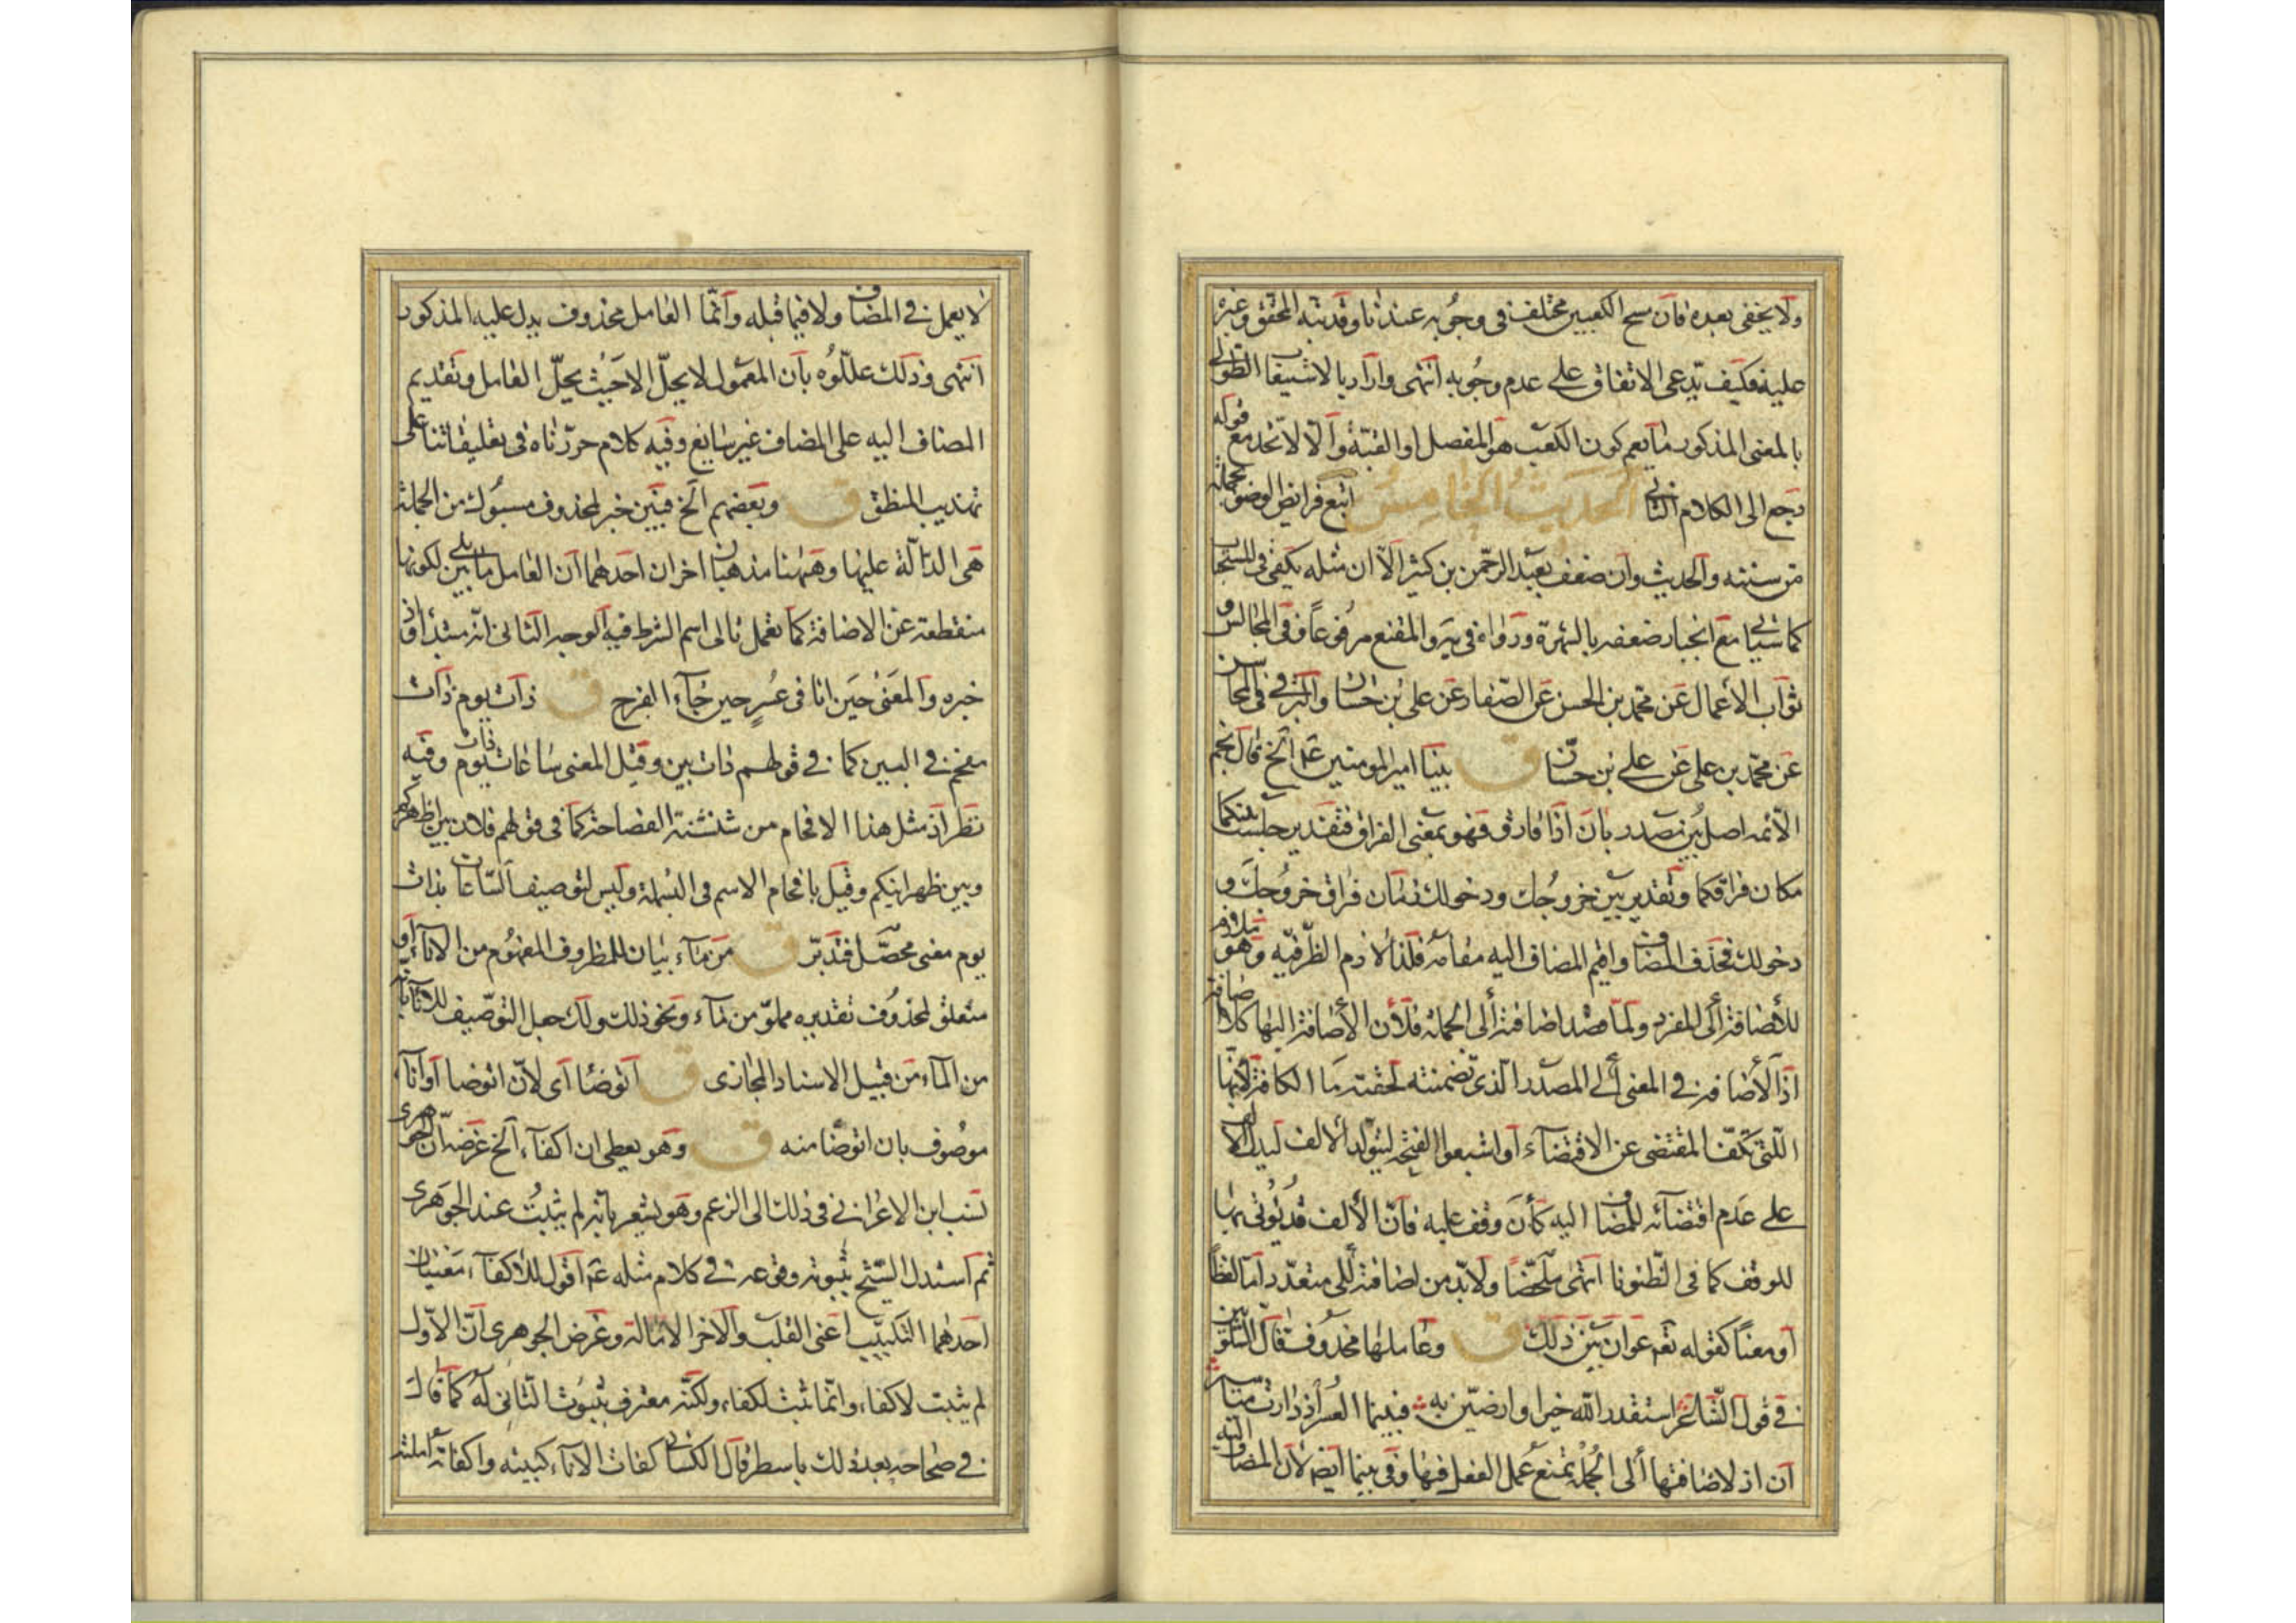 ولا يخفى بعده فان مسح الكعبين مختلف في وجوبه عندنا وقد نبه المحقق وغيره
عليه فكيف يدعى الاتفاق على عدم وجوبه انتهى واراد بالاشتيفا الطولى
بالمعنى المذكور ما يعم كون الكعب هو المفصل او القبة والا لاتحد مع قوله
رجع الى الكلام الثانى الحديث الخامس اتبع فرايض الوضوء بجملة
من سننه والحديث وان ضعف بعبد الرحمن بن كثير الا ان مثله يكفى في المستحبات
كما سيأتي مع انجبار ضعفه بالشهرة ورواه في والمقنع مرفوعا وفي المجالس و
ثواب الأعمال عن محمد بن الحسن عن الصفار عن على بن حسان والبرقي في المحاسن
عن محمد بن على عن على بن حسان ق بينا امير المومنين ع الخ قال نجم
الائمه اصل بين مصدر بان اذا فارق فهو بمعنى الفراق فتقدير جلست بينكما
مكان فراقكما وتقدير بين خروجك ودخولك زمان فراق خروجك و
دخولك فحذف المضاف واقيم المضاف اليه مقامه فلذا لازم الظرفيه وهو ملازم
للأضافة ألى المفرد ولما قصد اضافته ألى الجملة فلأن الأضافة اليها كلا اضافة
اذ الأضافة في المعنى ألى المصدر الذى تضمنته لحقته ما الكافة لأنها
اللتى تكف المقتضى عن الاقتضاء أو اشبعوا الفتحة ليتولد ألالف ليدل الالف
على عدم اقتضائه للمضاف اليه كأن وقف عليه فان الألف قد يؤتى بها
للوقف كما في الظنونا انتهى ملخصا ولابد من اضافته ألى متعدد اما لفظا
أو معنا كقوله تع عوان بين ذلك ق وعاملها محذوف قال الشلوبين
في قول الشاعر استقدر الله خيرا وارضين به فبينما العسر اذ دارت مياسير
ان اذ لاضافتها ألى الجملة تمنع عمل الفعل فيها وفي بينما ايضا لأن المضاف اليه
لا يعمل في المضاف ولا فيما قبله وانما العامل محذوف يدل عليه المذكور
انتهى وذلك عللوه بان المعمول لا يحل الا حيث يحل العامل وتقديم
المضاف اليه على المضاف غير سايغ وفيه كلام حررناه في تعليقاتنا على
تهذيب المنطق ق وبعضهم الخ فبين خبر لمحذوف مسبوك من الجملة
هى الدالة عليها وههنا مذهبان اخران احدهما ان العامل ما يلى بين لكونها
منقطعة عن الاضافة كما تعمل تالى اسم الشرط فيه الوجه الثانى انه مبتدأ واذ
خبره والمعنى حين انا في عسر حين جاء الفرج ق ذات يوم ذات
مقحم في البين كما في قولهم ذات بين وقيل المعنى ساعات ذات يوم وفيه
نظر اذ مثل هذا الاقحام من شنشنة الفصاحة كما في قولهم فلان بين اظهركم
وبين ظهرانيكم وقيل باقحام الاسم في البسملة وليس لتوصيف الساعات بذات
يوم معنى محصل فتدبر ق من ماء بيان للمظروف المفهوم من الاناء او
متعلق لمحذوف تقديره مملو من ماء ونحو ذلك ولك جعل التوصيف للاناء بانه
من الماء من قبيل الاسناد المجازى ق اتوضا اى لان اتوضا أو اناء
موصوف بان اتوضا منه ق وهو يعطى ان اكفاء الخ غرضه ان الجوهرى
نسب ابن الاعرابي في ذلك الى الزعم وهو يشعر بانه لم يثبت عند الجوهرى
ثم استدل الشيخ بثبوته وقوعه في كلام مثله ع اقول للاكفاء معنيان
احدهما التكبيب اعنى القلب والآخر الامالة وغرض الجوهرى ان الأول
لم يثبت لاكفاء وانما ثبت لكفاء ولكنه معترف بثبوت الثانى له كما قال
في صحاحه بعد ذلك باسطر قال الكسائى كفات الاناء كببته واكفاته املته